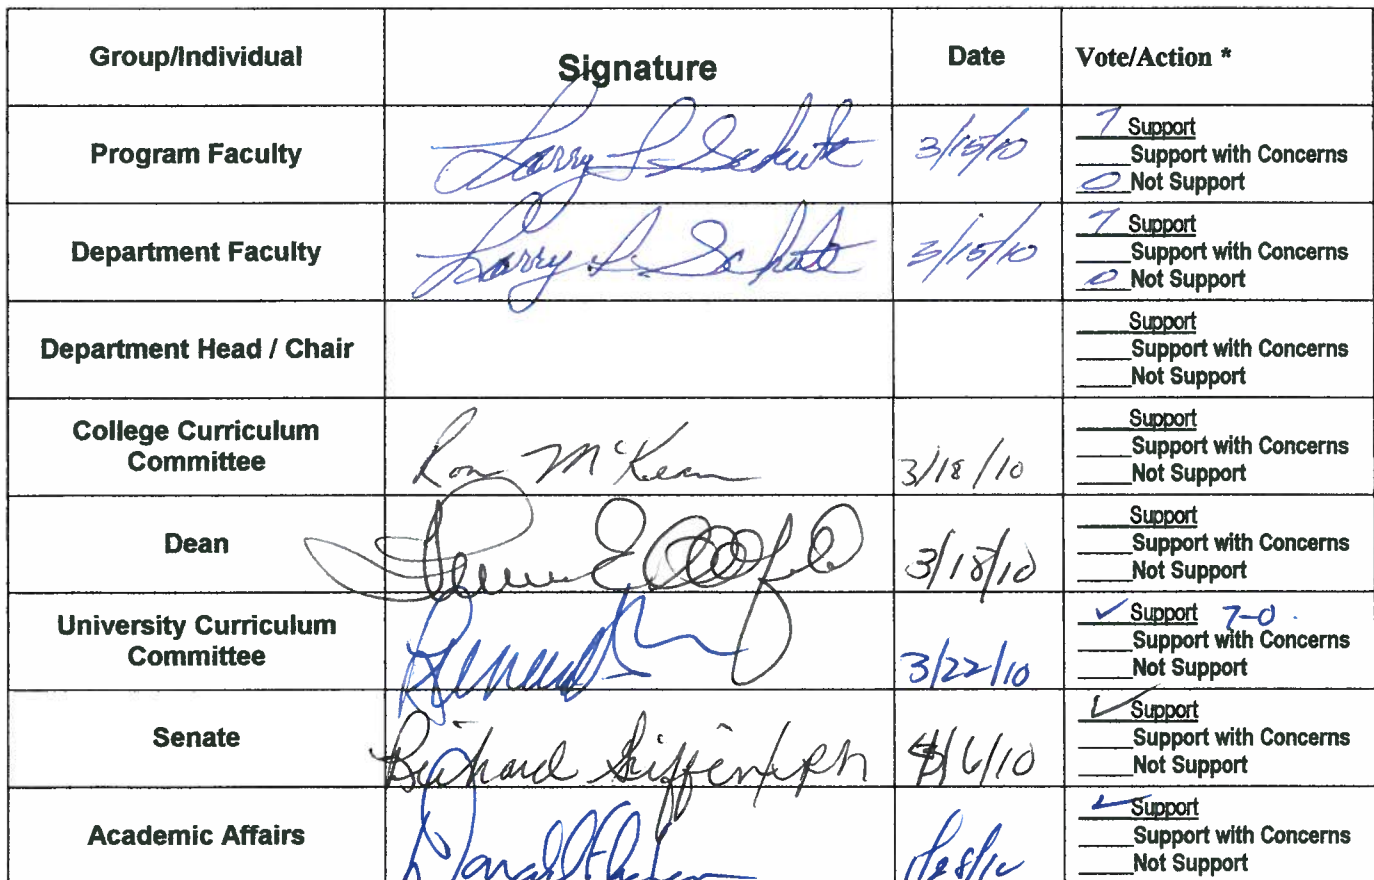 Group/Individual Signature Date Vote/Action *
Program Faculty Larry L. Schult 3/15/10 7 Support
Support with Concerns
0 Not Support
Department Faculty Larry L. Schult 3/15/10 7 Support
Support with Concerns
0 Not Support
Department Head / Chair Support
Support with Concerns
Not Support
College Curriculum
Committee Ron McKean 3/18/10 Support
Support with Concerns
Not Support
Dean 3/18/10 Support
Support with Concerns
Not Support
University Curriculum
Committee 3/22/10 ✓ Support 7-0.
Support with Concerns
Not Support
Senate Richard Griffin/rph 4/6/10 ✓ Support
Support with Concerns
Not Support
Academic Affairs ✓ Support
Support with Concerns
Not Support